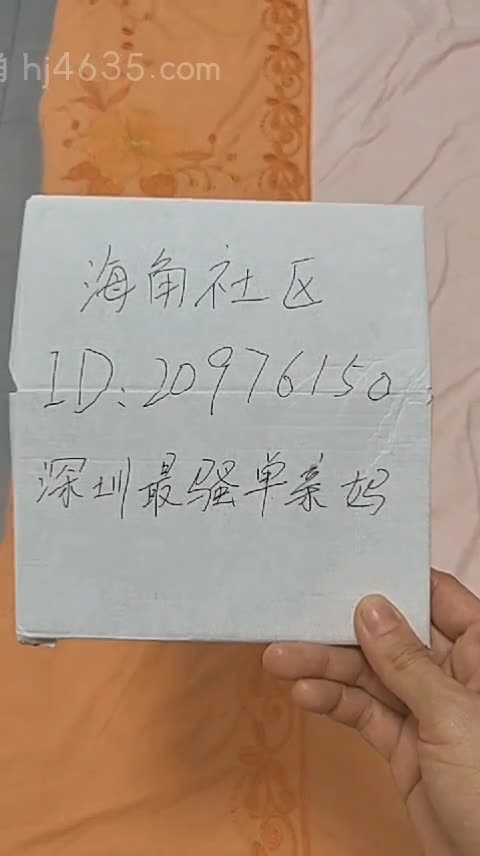 角 hj4635.com
海角社区
ID:20976150
深圳最骚单亲妈